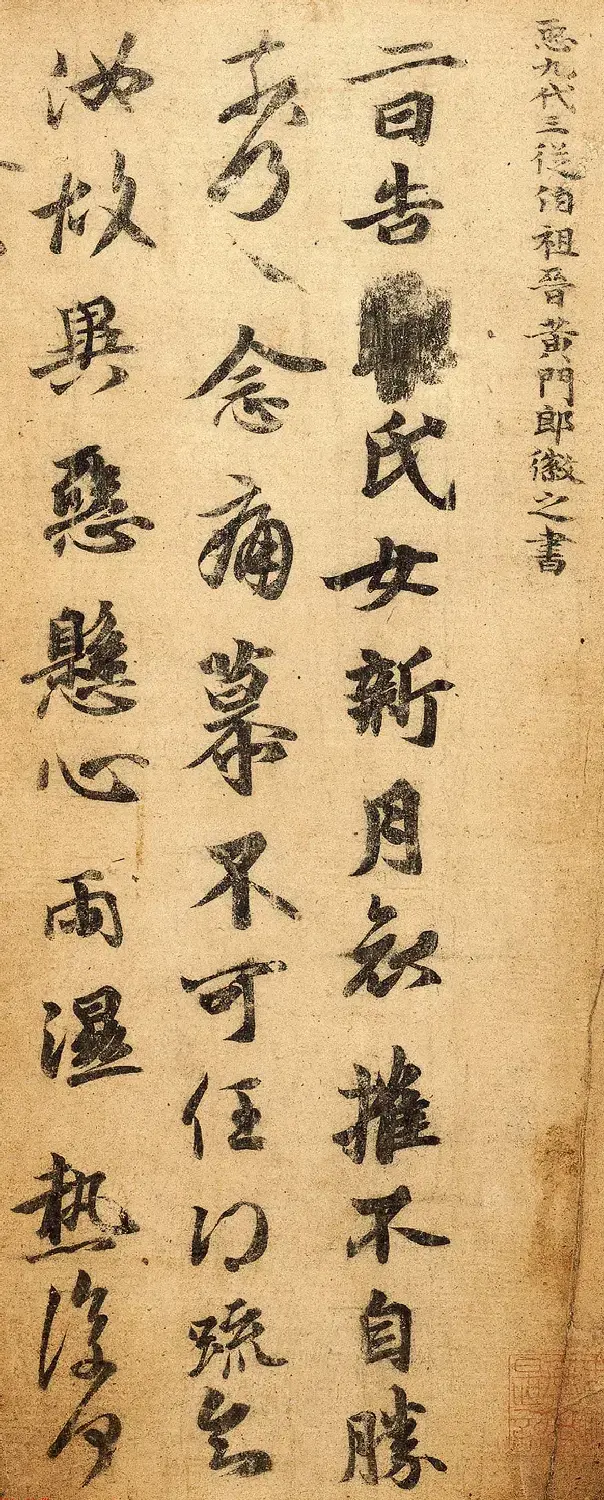 𢘑九代三從伯祖晉黃門郎徽之書
二日告氏女新月哀摧不自勝
奈何〻〻念痛慕不可任得疏知
汝故異惡懸心雨濕熱復何